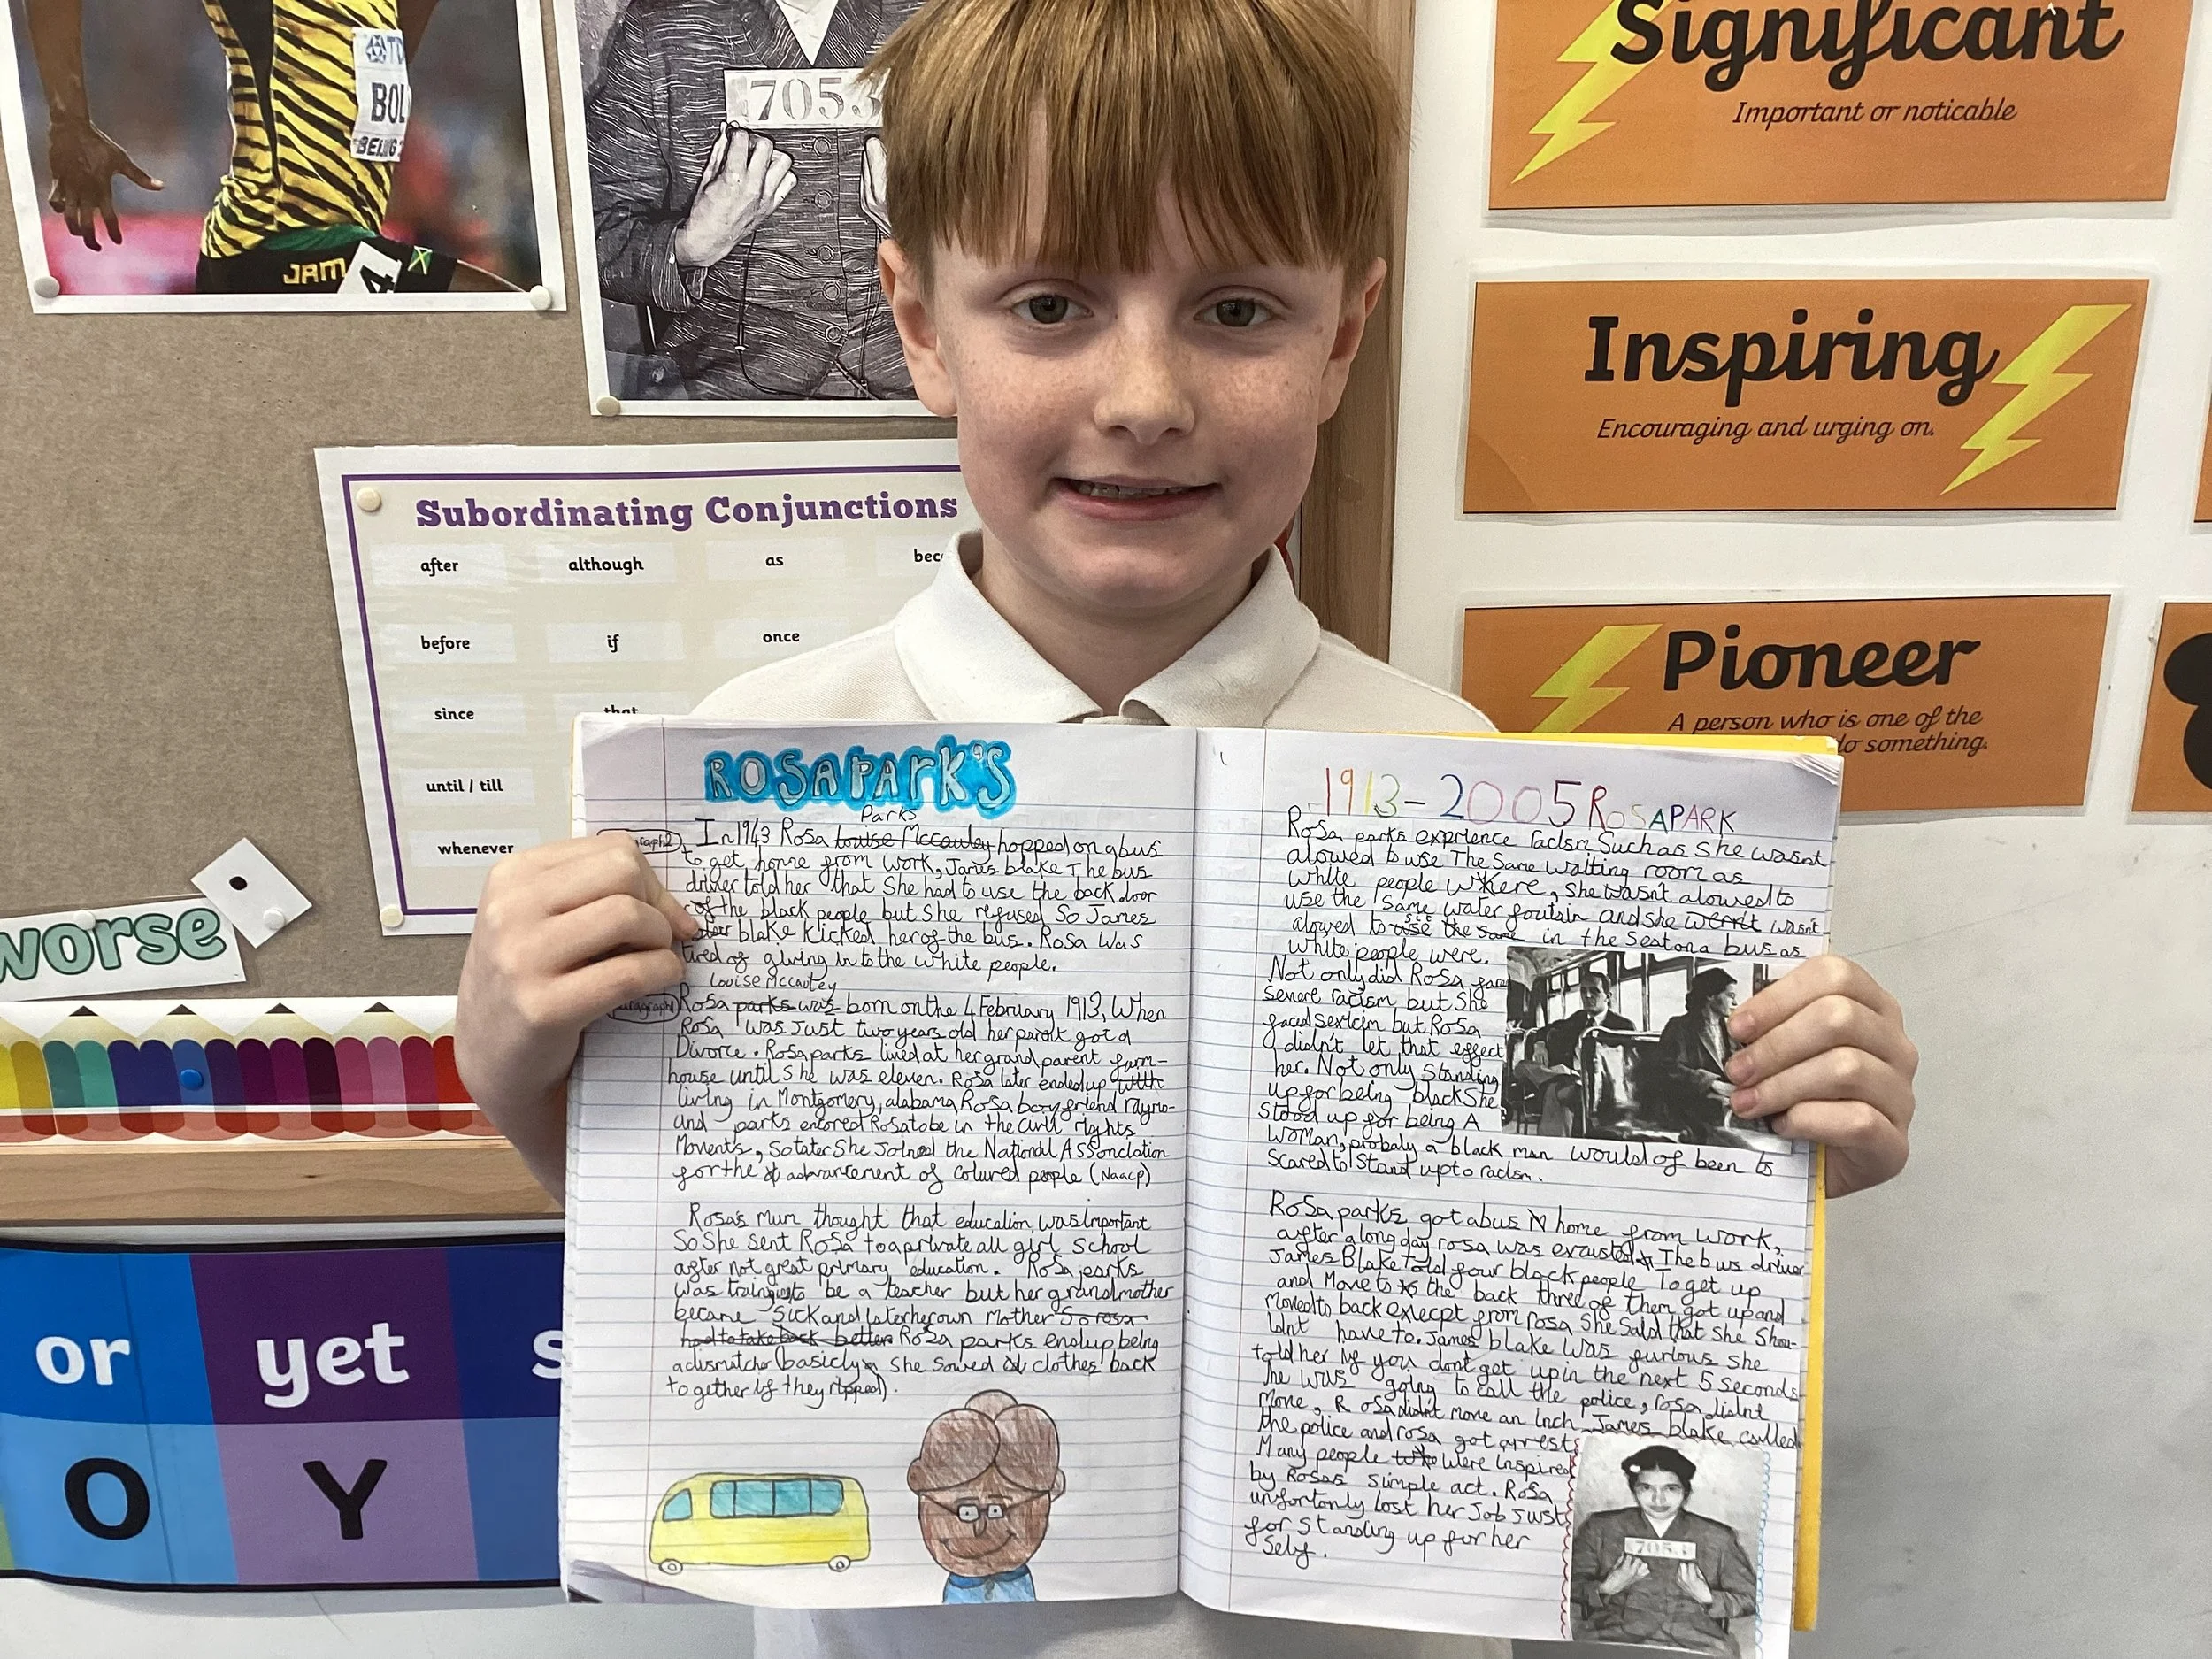 TD
BOL
BEIJING
JAM
4
7053
Significant
Important or noticable
Inspiring
Encouraging and urging on.
Pioneer
A person who is one of the
do something.
Subordinating Conjunctions
after although as bec
before if once
since that
until / till
whenever
worse
or yet s
O Y
ROSAPARK'S
Parks
In 1943 Rosa Louise Mccauley hopped on a bus
to get home from work, James blake The bus
driver told her that She had to use the back door
of the black people but She refused So James
blake kicked her of the bus. Rosa was
tired of giving in to the white people.
Louise Mccauley
Rosa parks was born on the 4 February 1913, When
Rosa was Just two years old her parent got a
Divorce. Rosa parks lived at her grand parent farm-
house until She was eleven. Rosa later ended up with
living in Montgomery, alabama, Rosa boy friend raymo-
and parks entored Rosa to be in the civil rights
Movents, So later She Joined the National Assonciation
for the advancement of coloured people (Naacp)
Rosa's mum thought that education was important
So She sent Rosa to a private all girl School
after not great primary education. Rosa parks
was training to be a teacher but her grandmother
became Sick and later her own mother So rosa
had to take back better Rosa parks endup being
a dismatcher (basicly She sowed clothes back
together if they ripped).
1913-2005 ROSAPARK
Rosa parks exprience racism Such as She wasnt
alowed to use The Same waiting room as
white people where, She wasn't alowed to
use the Same water foutain and she werent wasn't
sit
alowed to use the same in the Seat on a bus as
white people were.
Not only did Rosa face
severe racism but She
faced Sexicim but Rosa
didn't let that effect
her. Not only Standing
up for being black She
Stood up for being A
Woman, probaly a black man would of been to
Scared to Stand up to racism.
Rosa parks got a bus home from work,
after a long day rosa was exausted The bus driver
James Blake Told four black people To get up
and Move to the back three of them got up and
Moved to back execpt from rosa She Said that She Shou-
ldnt have to. James blake was furious She
told her if you dont get up in the next 5 Seconds
he was going to call the police, rosa didnt
Move, Rosa didnt Move an inch James blake called
the police and rosa got arrest
Many people were inspired
by Rosas Simple act. Rosa
unfortonly lost her Job Just
for Standing up for her
Self.
7053